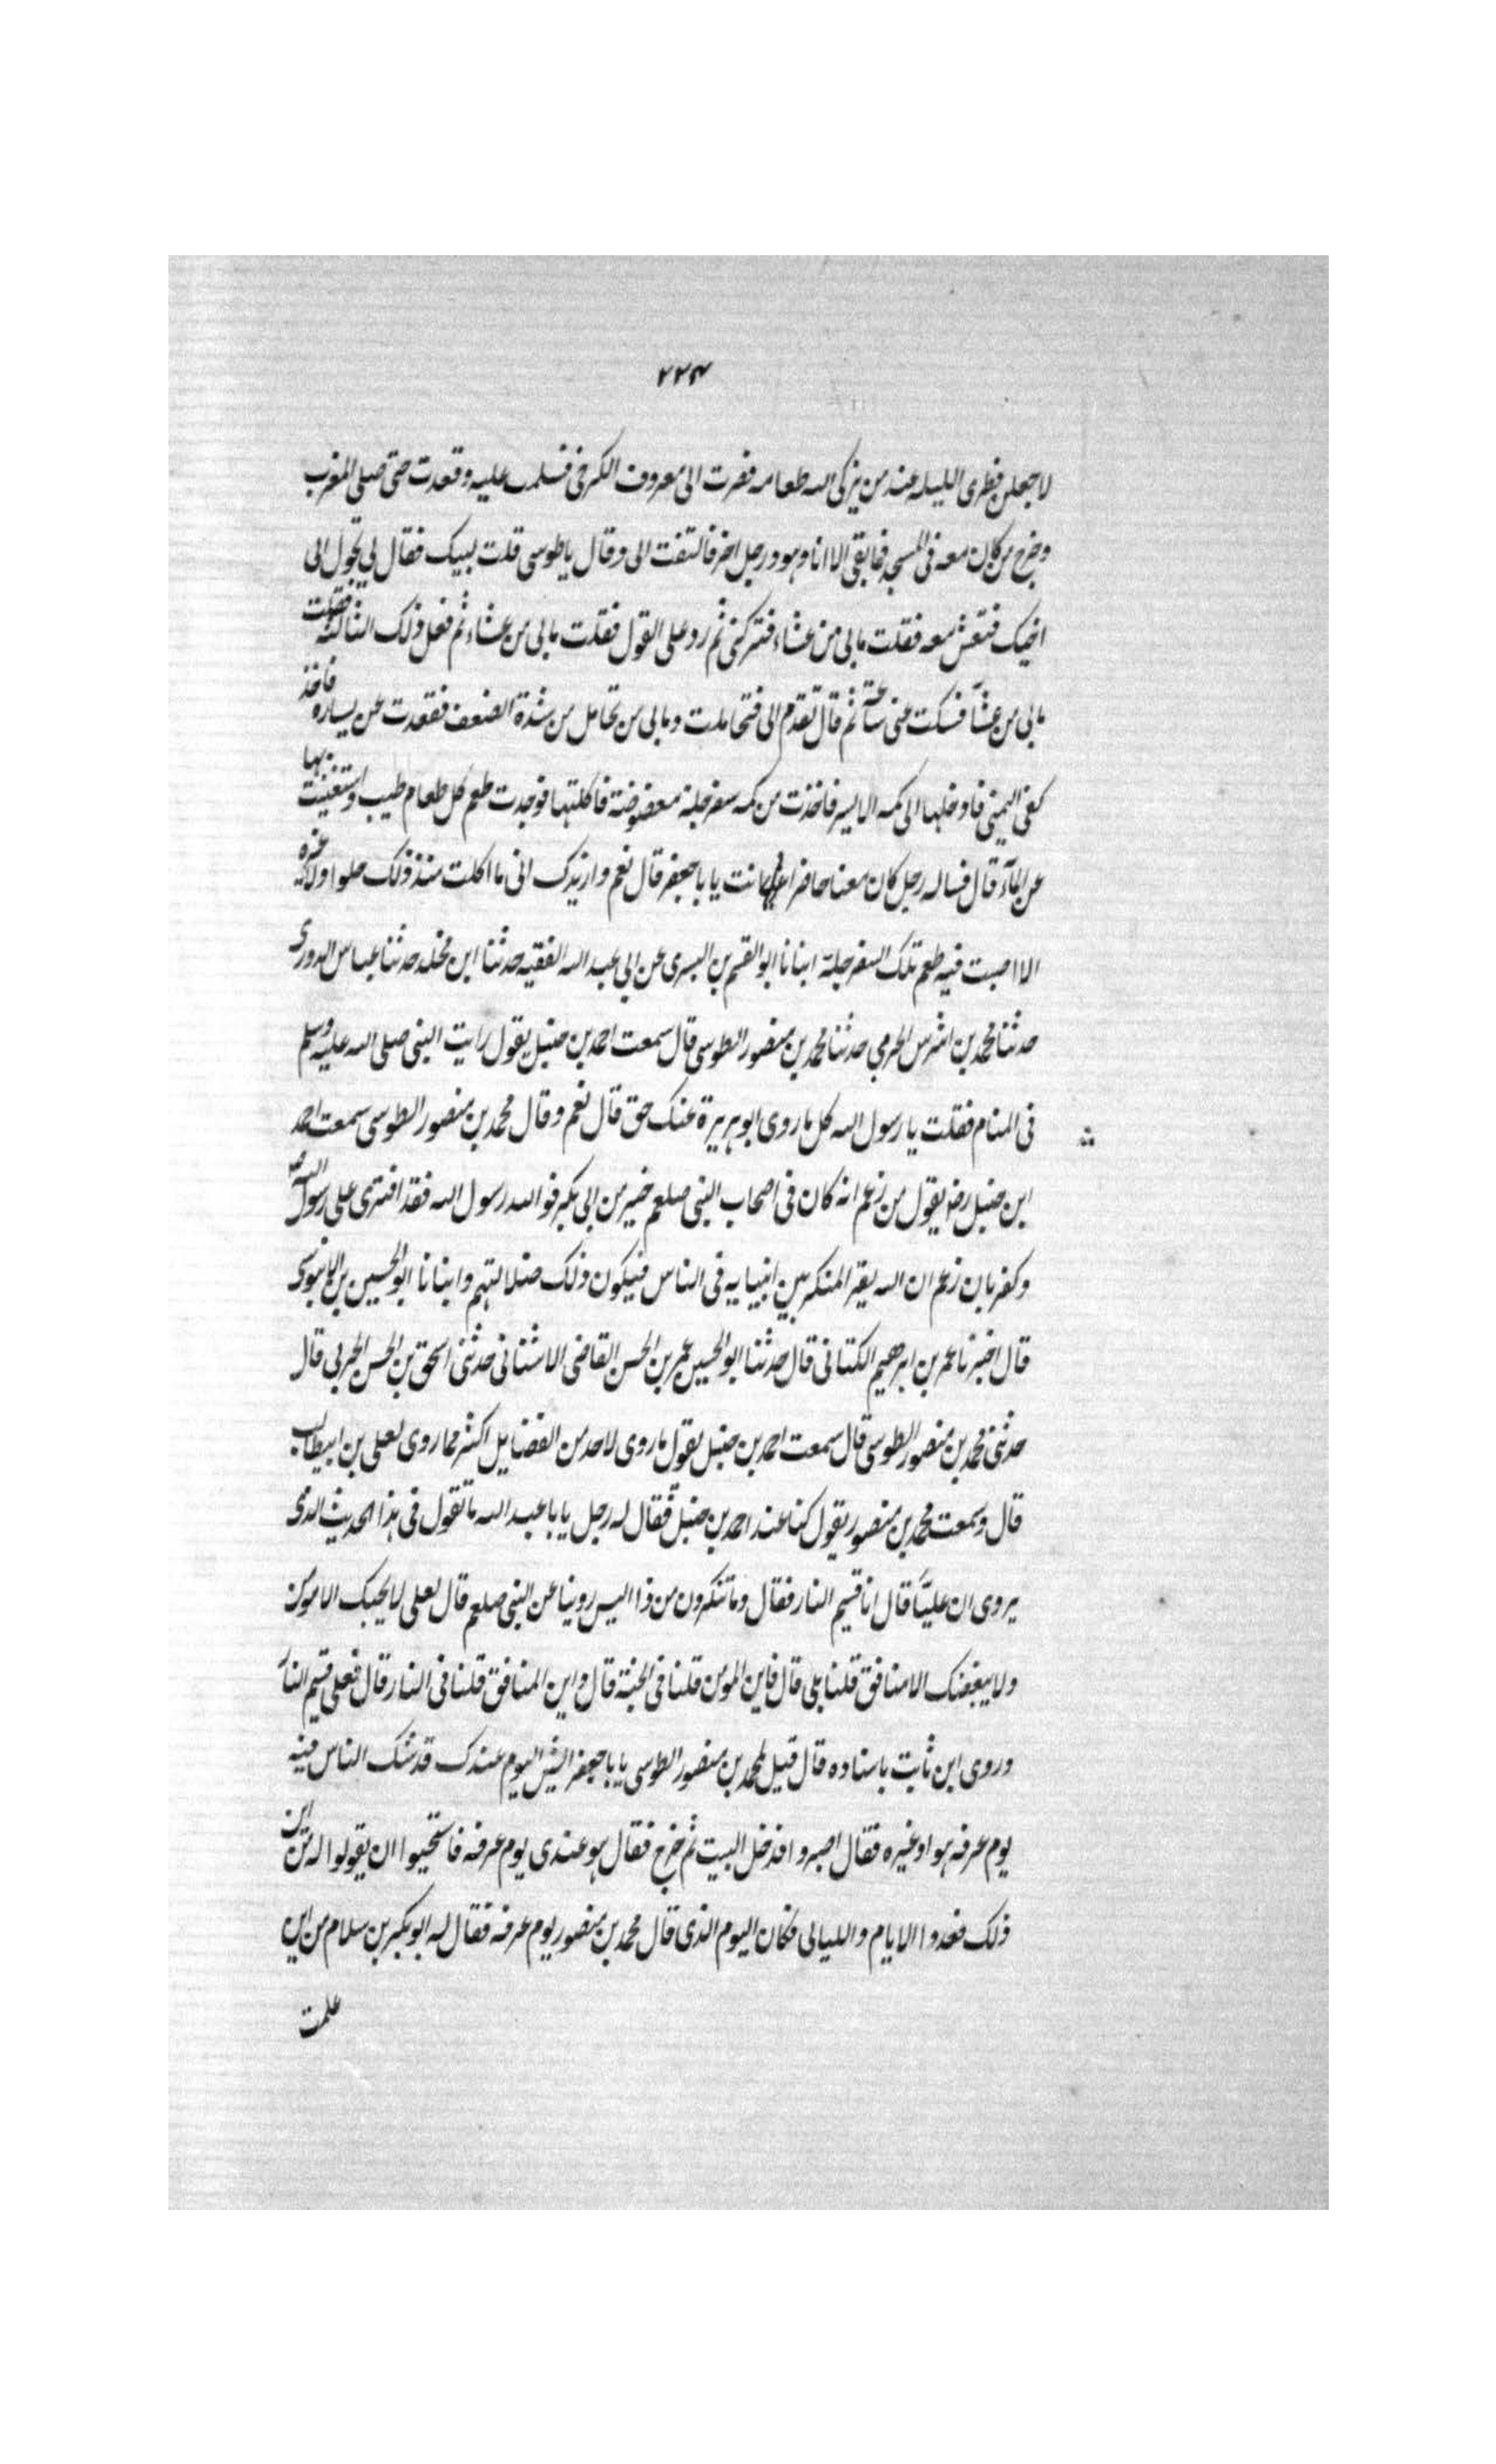 ۲۲۴
لاجعلن فطری اللیله عند من یزکی الله طعامه فصرت الی معروف الکرخی فسلمت علیه وقعدت حتی صلی المغرب
وخرج من کان معه فی المسجد فما بقی الا انا وهو ورجل اخر فالتفت الی وقال یا طوسی قلت لبیک فقال لی تحول الی
اخیک فتعش معه فقلت مالی من عشاء فترکنی ثم رد علی القول فقلت مالی من عشاء ثم فعل ذلک الثالثه فقلت
مالی من عشآ فسکت عنی ساعة ثم قال تقدم الی فتحاملت ومالی من تحامل من شدة الضعف فقعدت عن یساره فاخذ
کفی الیمنی فادخلها الی کمه الایسر فاخذت من کمه سفرجلة معضوضة فاکلتها فوجدت طعم کل طعام طیب واستغنیت بها
عن المآء قال فساله رجل کان معنا حاضرا انت یا با جعفر قال نعم وازیدک انی ما اکلت منذ ذلک حلوا ولا غیره
الا اصبت فیه طعم تلک السفرجلة انبانا ابو القسم بن البسری عن ابی عبد الله الفقیه حدثنا ابن مخلد حدثنا عباس الدوری
حدثنا محمد بن اشرس الحرمی حدثنا محمد بن منصور الطوسی قال سمعت احمد بن حنبل یقول رایت النبی صلی الله علیه وسلم
فی المنام فقلت یا رسول الله کل ما روی ابو هریرة عنک حق قال نعم وقال محمد بن منصور الطوسی سمعت احمد
ابن حنبل رضه یقول من زعم انه کان فی اصحاب النبی صلعم خیر من ابی بکر فوالله رسول الله فقد افتری علی رسول الله
وکفر بان زعم ان الله یقر المنکر بین انبیایه فی الناس فیکون ذلک ضلالتهم وانبانا ابو الحسین بن الابنوسی
قال اخبرنا عمر بن ابرهیم الکتانی قال حدثنا ابو الحسین عمر بن الحسن القاضی الاشنانی حدثنی اسحق بن الحسن الحربی قال
حدثنی محمد بن منصور الطوسی قال سمعت احمد بن حنبل یقول ما روی لاحد من الفضایل اکثر مما روی لعلی بن ابیطالب
قال وسمعت محمد بن منصور یقول کنا عند احمد بن حنبل فقال له رجل یا با عبد الله ما تقول فی هذا الحدیث الذی
یروی ان علیا قال انا قسیم النار فقال وما تنکرون من ذا الیس روینا عن النبی صلعم قال لعلی لا یحبک الا مومن
ولا یبغضک الا منافق قلنا بلی قال فاین المومن قلنا فی الجنة قال واین المنافق قلنا فی النار قال فعلی قسیم النار
وروی ابن ثابت باسناده قال قیل لمحمد بن منصور الطوسی یا با جعفر ایش الیوم عندک قد شک الناس فیه
یوم عرفه هو او غیره فقال اصبروا فدخل البیت ثم خرج فقال هو عندی یوم عرفه فاستحیوا ان یقولوا له من این
ذلک فعدوا الایام واللیالی فکان الیوم الذی قال محمد بن منصور یوم عرفه فقال له ابو بکر بن سلام من این
علمت